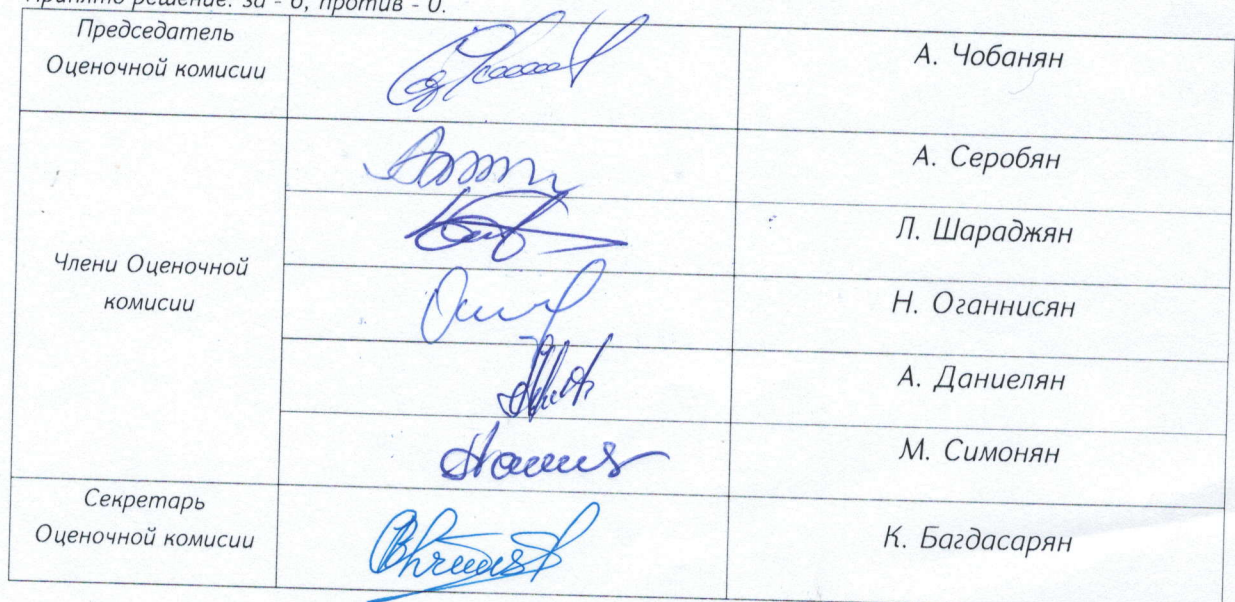 Принято решение: за - 6, против - 0.
Председатель
Оценочной комисии
А. Чобанян
Члени Оценочной
комисии
А. Серобян
Л. Шараджян
Н. Оганнисян
А. Даниелян
М. Симонян
Секретарь
Оценочной комисии
К. Багдасарян